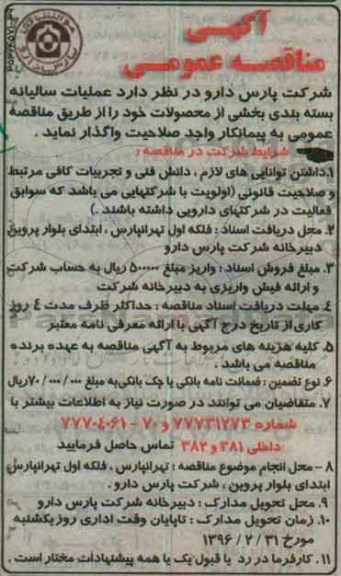 آگهی
مناقصه عمومی
پارس دارو
شرکت پارس دارو در نظر دارد عملیات سالیانه
بسته بندی بخشی از محصولات خود را از طریق مناقصه
عمومی به پیمانکار واجد صلاحیت واگذار نماید .
شرایط شرکت در مناقصه :
۱.داشتن توانایی های لازم ، دانش فنی و تجربیات کافی مرتبط
و صلاحیت قانونی (اولویت با شرکتهایی می باشد که سوابق
فعالیت در شرکتهای دارویی داشته باشند .)
۲. محل دریافت اسناد : فلکه اول تهرانپارس ، ابتدای بلوار پروین
دبیرخانه شرکت پارس دارو
۳. مبلغ فروش اسناد : واریز مبلغ ۵۰۰۰۰۰ ریال به حساب شرکت
و ارائه فیش واریزی به دبیرخانه شرکت
۴. مهلت دریافت اسناد مناقصه : حداکثر ظرف مدت ۴ روز
کاری از تاریخ درج آگهی با ارائه معرفی نامه معتبر
۵. کلیه هزینه های مربوط به آگهی مناقصه به عهده برنده
مناقصه می باشد .
۶. نوع تضمین : ضمانت نامه بانکی یا چک بانکی به مبلغ ۷۰/۰۰۰/۰۰۰ریال
۷. متقاضیان می توانند در صورت نیاز به اطلاعات بیشتر با
شماره ۷۷۷۳۱۲۷۳ و ۷۰ - ۷۷۷۰۴۰۶۱
داخلی ۳۸۱ و ۳۸۲ تماس حاصل فرمایید
۸ - محل انجام موضوع مناقصه : تهرانپارس ، فلکه اول تهرانپارس
ابتدای بلوار پروین ، شرکت پارس دارو .
۹. محل تحویل مدارک : دبیرخانه شرکت پارس دارو
۱۰. زمان تحویل مدارک : تاپایان وقت اداری روز یکشنبه
مورخ ۱۳۹۶ / ۲ / ۳۱
۱۱. کارفرما در رد یا قبول یک یا همه پیشنهادات مختار است .